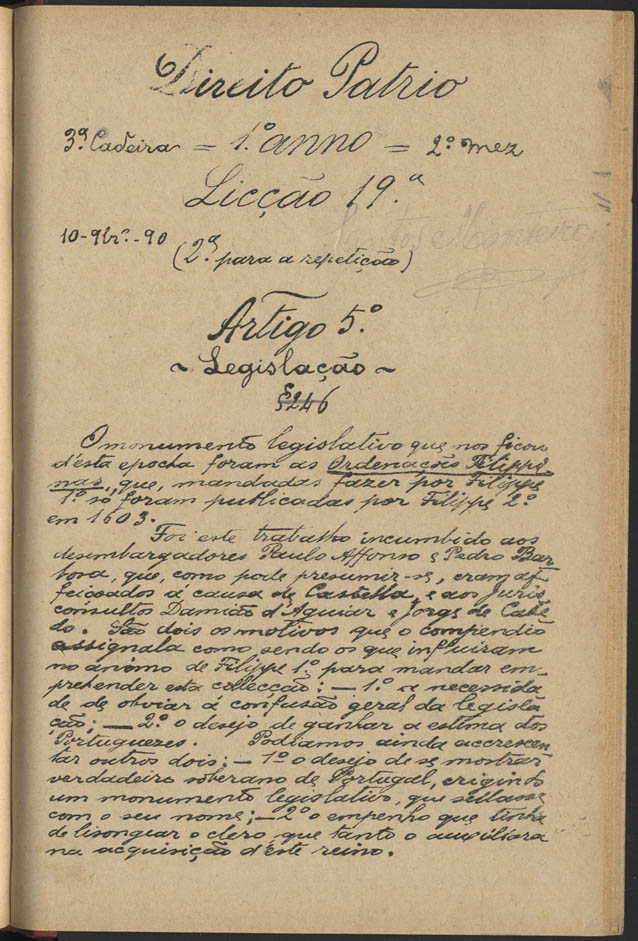 Direito Patrio
3ª Cadeira = 1.º anno = 2.º mez
Licção 19.ª
10-9br.º-90
(2.ª para a repetição)
Artigo 5.º
~ Legislação ~
§246
O monumento legislativo que nos ficou
d'esta epocha foram as Ordenações Filippi-
nas, que, mandadas fazer por Filippe
1.º só foram publicadas por Filippe 2.º
em 1603.
Foi este trabalho incumbido aos
desembargadores Paulo Affonso e Pedro Bar-
bosa, que, como pode presumir-se, eram af-
feiçoados á causa de Castella, e aos juris
consultos Damião d'Aguiar e Jorge de Cabe-
do. São dois os motivos que o compendio
assignala como sendo os que influiram
no ánimo de Filippe 1.º para mandar em-
prehender esta collecção: — 1.º a necessida
de de obviar á confusão geral da legisla
ção; — 2.º o desejo de ganhar a estima dos
Portuguezes. Podiamos ainda accrescen
tar outros dois; — 1º o desejo de se mostrar
verdadeiro soberano de Portugal, erigindo
um monumento legislativo, que sellasse
com o seu nome; — 2º o empenho que tinha
de lisongear o clero que tanto o auxiliára
na acquisição d'este reino.